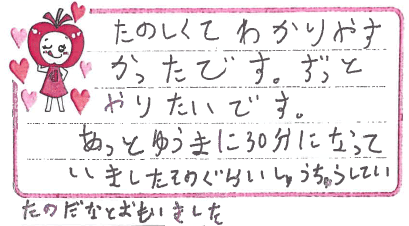 たのしくてわかりやす
かったです。ずっと
やりたいです。
あっとゆうまに30分になって
いましたそのぐらいしゅうちゅうしてい
たのだなとおもいました